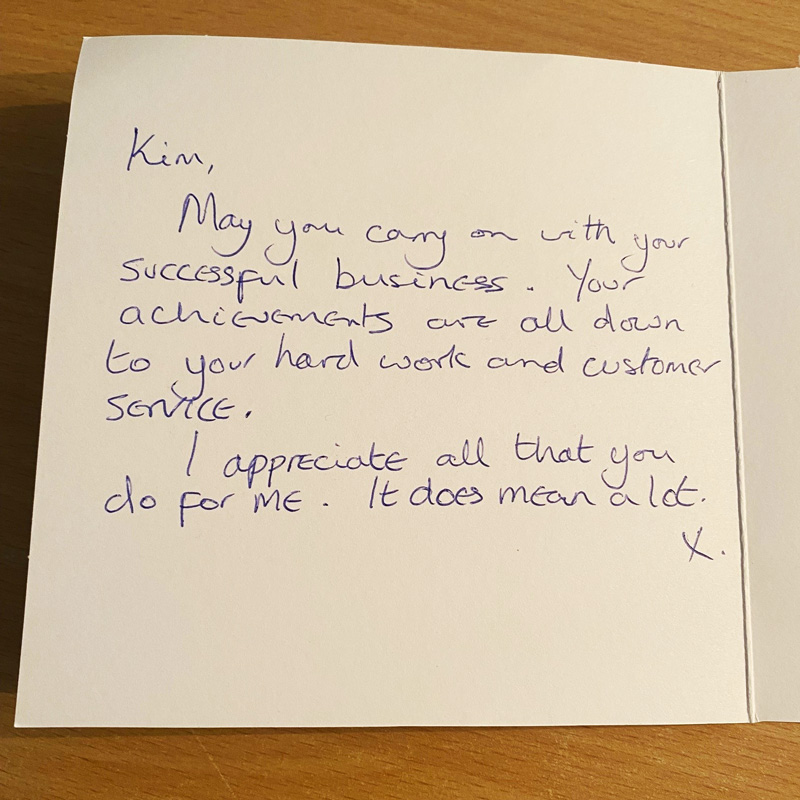 Kim,
May you carry on with your
successful business. Your
achievements are all down
to your hard work and customer
service.
I appreciate all that you
do for me. It does mean a lot.
x.